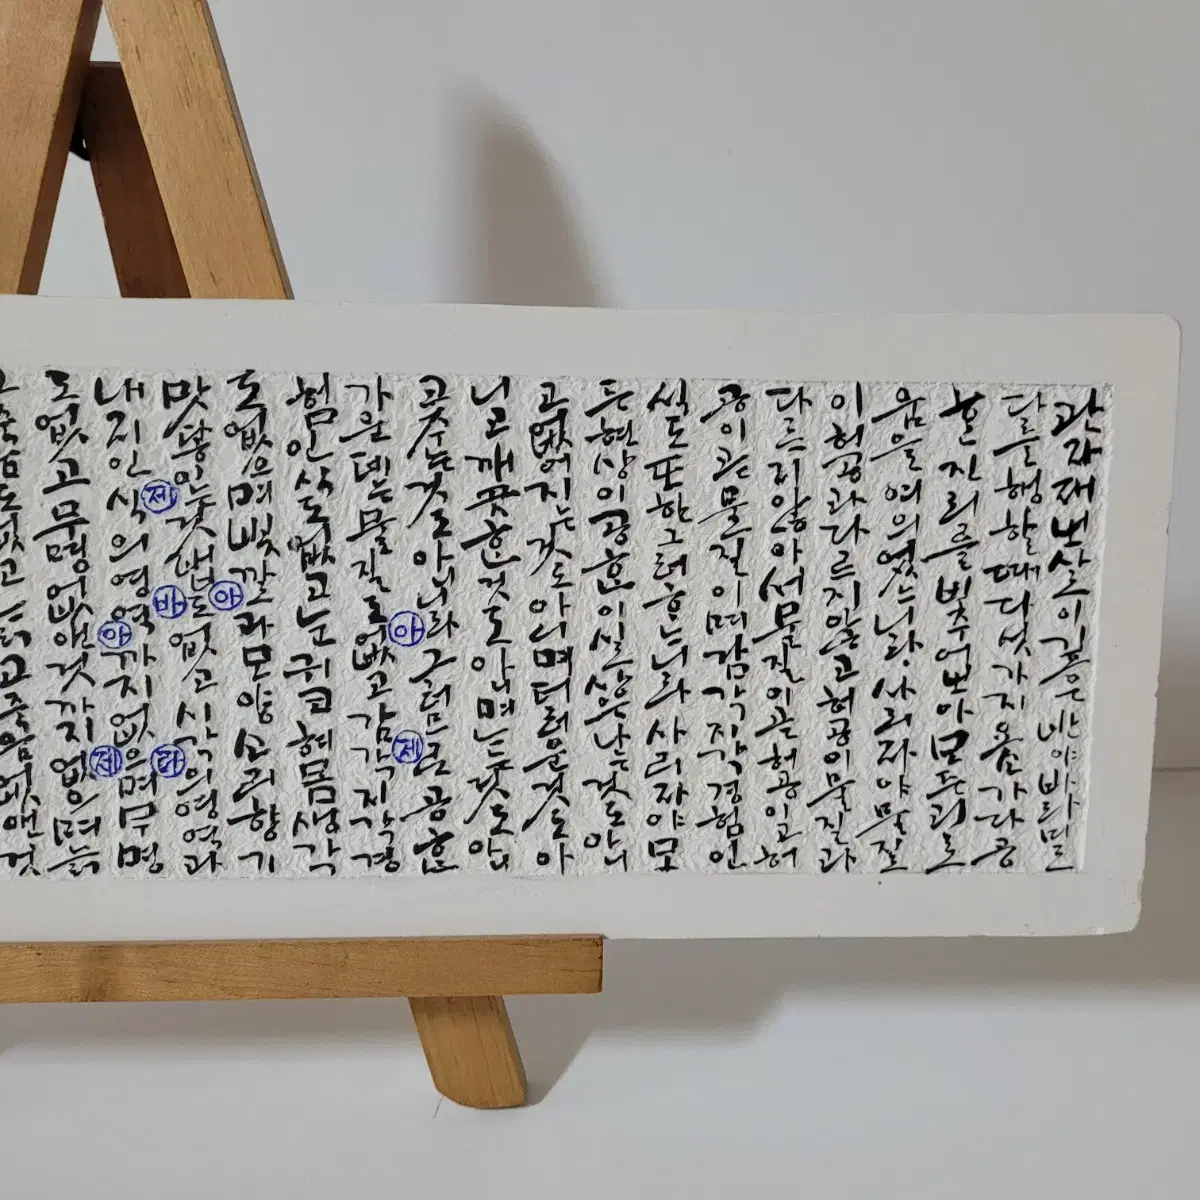 관자재보살이깊은반야바라밀
다를행할때다섯가지요소가다공
한진리를비추어보아모든괴로
움을여의었느니라.사리자야물질
이허공과다르지않고허공이물질과
다르지않아서물질이곧허공이고허
공이곧물질이며감각지각경험인
식도또한그러하느니라사리자야모
든현상이공한이실상은나는것도아니
고없어지는것도아니며더러운것도아
니고깨끗한것도아니며느는것도아니
고주는것도아니니라그러므로공한
가운데는물질도없고감각지각경
험인식도없고눈귀코혀몸생각
도없으며빛깔과모양소리향기
맛닿는것법도없고시각의영역과
내지인식의영역까지없으며무명
도없고무명없앤것까지없으며늙
고죽음도없고늙고죽음없앤것
아
제
아
제
바
라
아
제